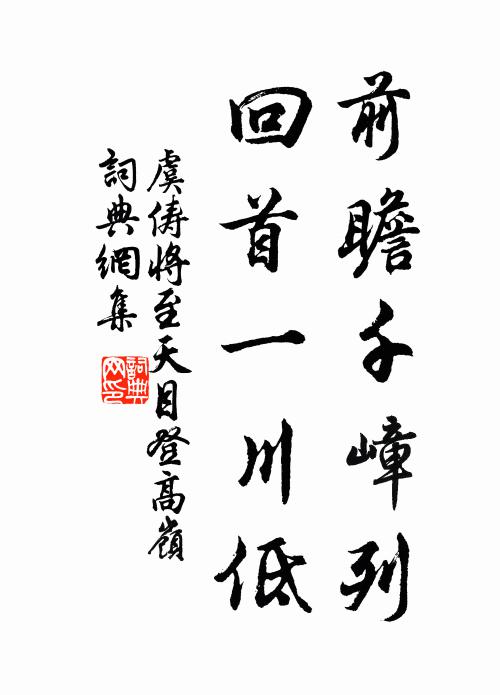 前瞻千嶂列
回首一川低
虞儔將至天目登高嶺
詞典網集
詞典
網印